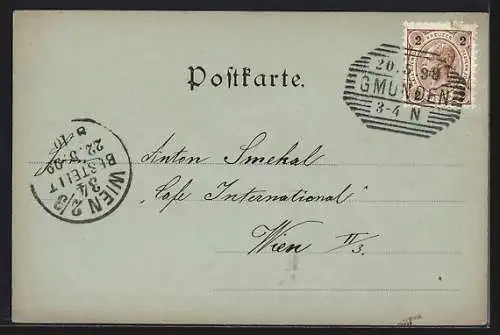 2 KREUZER 2
20.
98
GMUNDEN
3-4 N
Postkarte.
WIEN 2/3
34
BESTELLT
22.
Anton Smekal
„Cafe International"
Wien II/3.